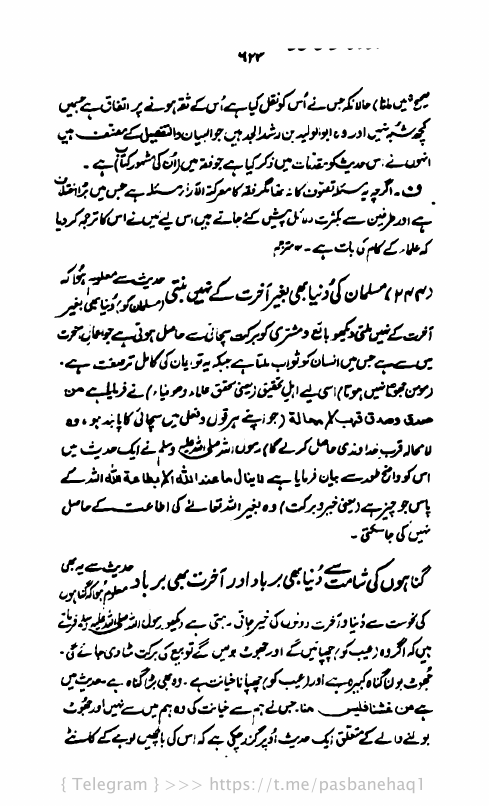 ۶۲۳
صحیح نہیں ملتا) حالانکہ جس نے اُس کو نقل کیا ہے اُس کے ثقہ ہونے پر اتفاق ہے جس میں
کچھ شبہ نہیں اور وہ ابو الولید بن رشد الجد ہیں جو البیان والتحصیل کے مصنف ہیں
انہوں نے اس حدیث کو مقدمات میں ذکر کیا ہے جو فقہ میں (اُن کی مشہور کتاب) ہے ۔
ف ۔ اگرچہ یہ مسئلہ تصوف کا نہ تھا مگر فقہ کا معرکۃ الآراء مسئلہ ہے جس میں بڑا اختلاف
ہے اور طرفین سے بکثرت دلائل پیش کئے جاتے ہیں اس لیے میں نے اس کا ترجمہ کردیا
کہ علماء کے کام کی بات ہے ۔ مترجم
(۲۴۴) مسلمان کی دُنیا بھی بغیر آخرت کے نہیں بنتی حدیث سے معلوم ہوا کہ
(مسلمان کو) دُنیا بھی بغیر
آخرت کے نہیں ملتی دیکھو بائع و مشتری کو برکت سچائی سے حاصل ہوتی ہے جو اعمال آخرت
میں سے ہے جس میں انسان کو ثواب ملتا ہے جبکہ یہ تو ایمان کی کامل تر صفت ہے ۔
(مومن جھوٹا نہیں ہوتا) اسی لیے اہل تحقیق (یعنی محقق علماء و صوفیاء) نے فرمایا ہے من
صدق وصدق قرب لا محالة (جو اپنے ہر قول و فعل میں سچائی کا پابند ہو، وہ
لا محالہ قرب خداوندی حاصل کرے گا) رسول اللہ صلی اللہ علیہ وسلم نے ایک حدیث میں
اس کو واضح طور سے بیان فرمایا ہے لا ینال ما عند اللہ الا بطاعة اللہ اللہ کے
پاس جو چیز ہے (یعنی خیر و برکت) وہ بغیر اللہ تعالےٰ کی اطاعت کے حاصل
نہیں کی جاسکتی ۔
گناہوں کی شامت سے دُنیا بھی برباد اور آخرت بھی برباد حدیث سے یہ بھی
معلوم ہوا کہ گناہوں
کی نحوست سے دُنیا و آخرت دونوں کی خیر جاتی رہتی ہے دیکھو رسول اللہ صلی اللہ علیہ وسلم فرماتے
ہیں کہ اگر وہ (عیب کو) چھپائیں گے اور جھوٹ بولیں گے تو بیع کی برکت مٹا دی جائے گی ۔
جھوٹ بولنا گناہ کبیرہ ہے اور (عیب کو) چھپانا خیانت ہے ۔ وہ بھی بڑا گناہ ہے ۔ حدیث میں
ہے من غشنا فلیس منا جس نے ہم سے خیانت کی وہ ہم میں سے نہیں اور جھوٹ
بولنے والے کے متعلق ایک حدیث اُوپر گزر چکی ہے کہ اس کی باچھیں لوہے کے کانٹے
{ Telegram } >>> https://t.me/pasbanehaq1